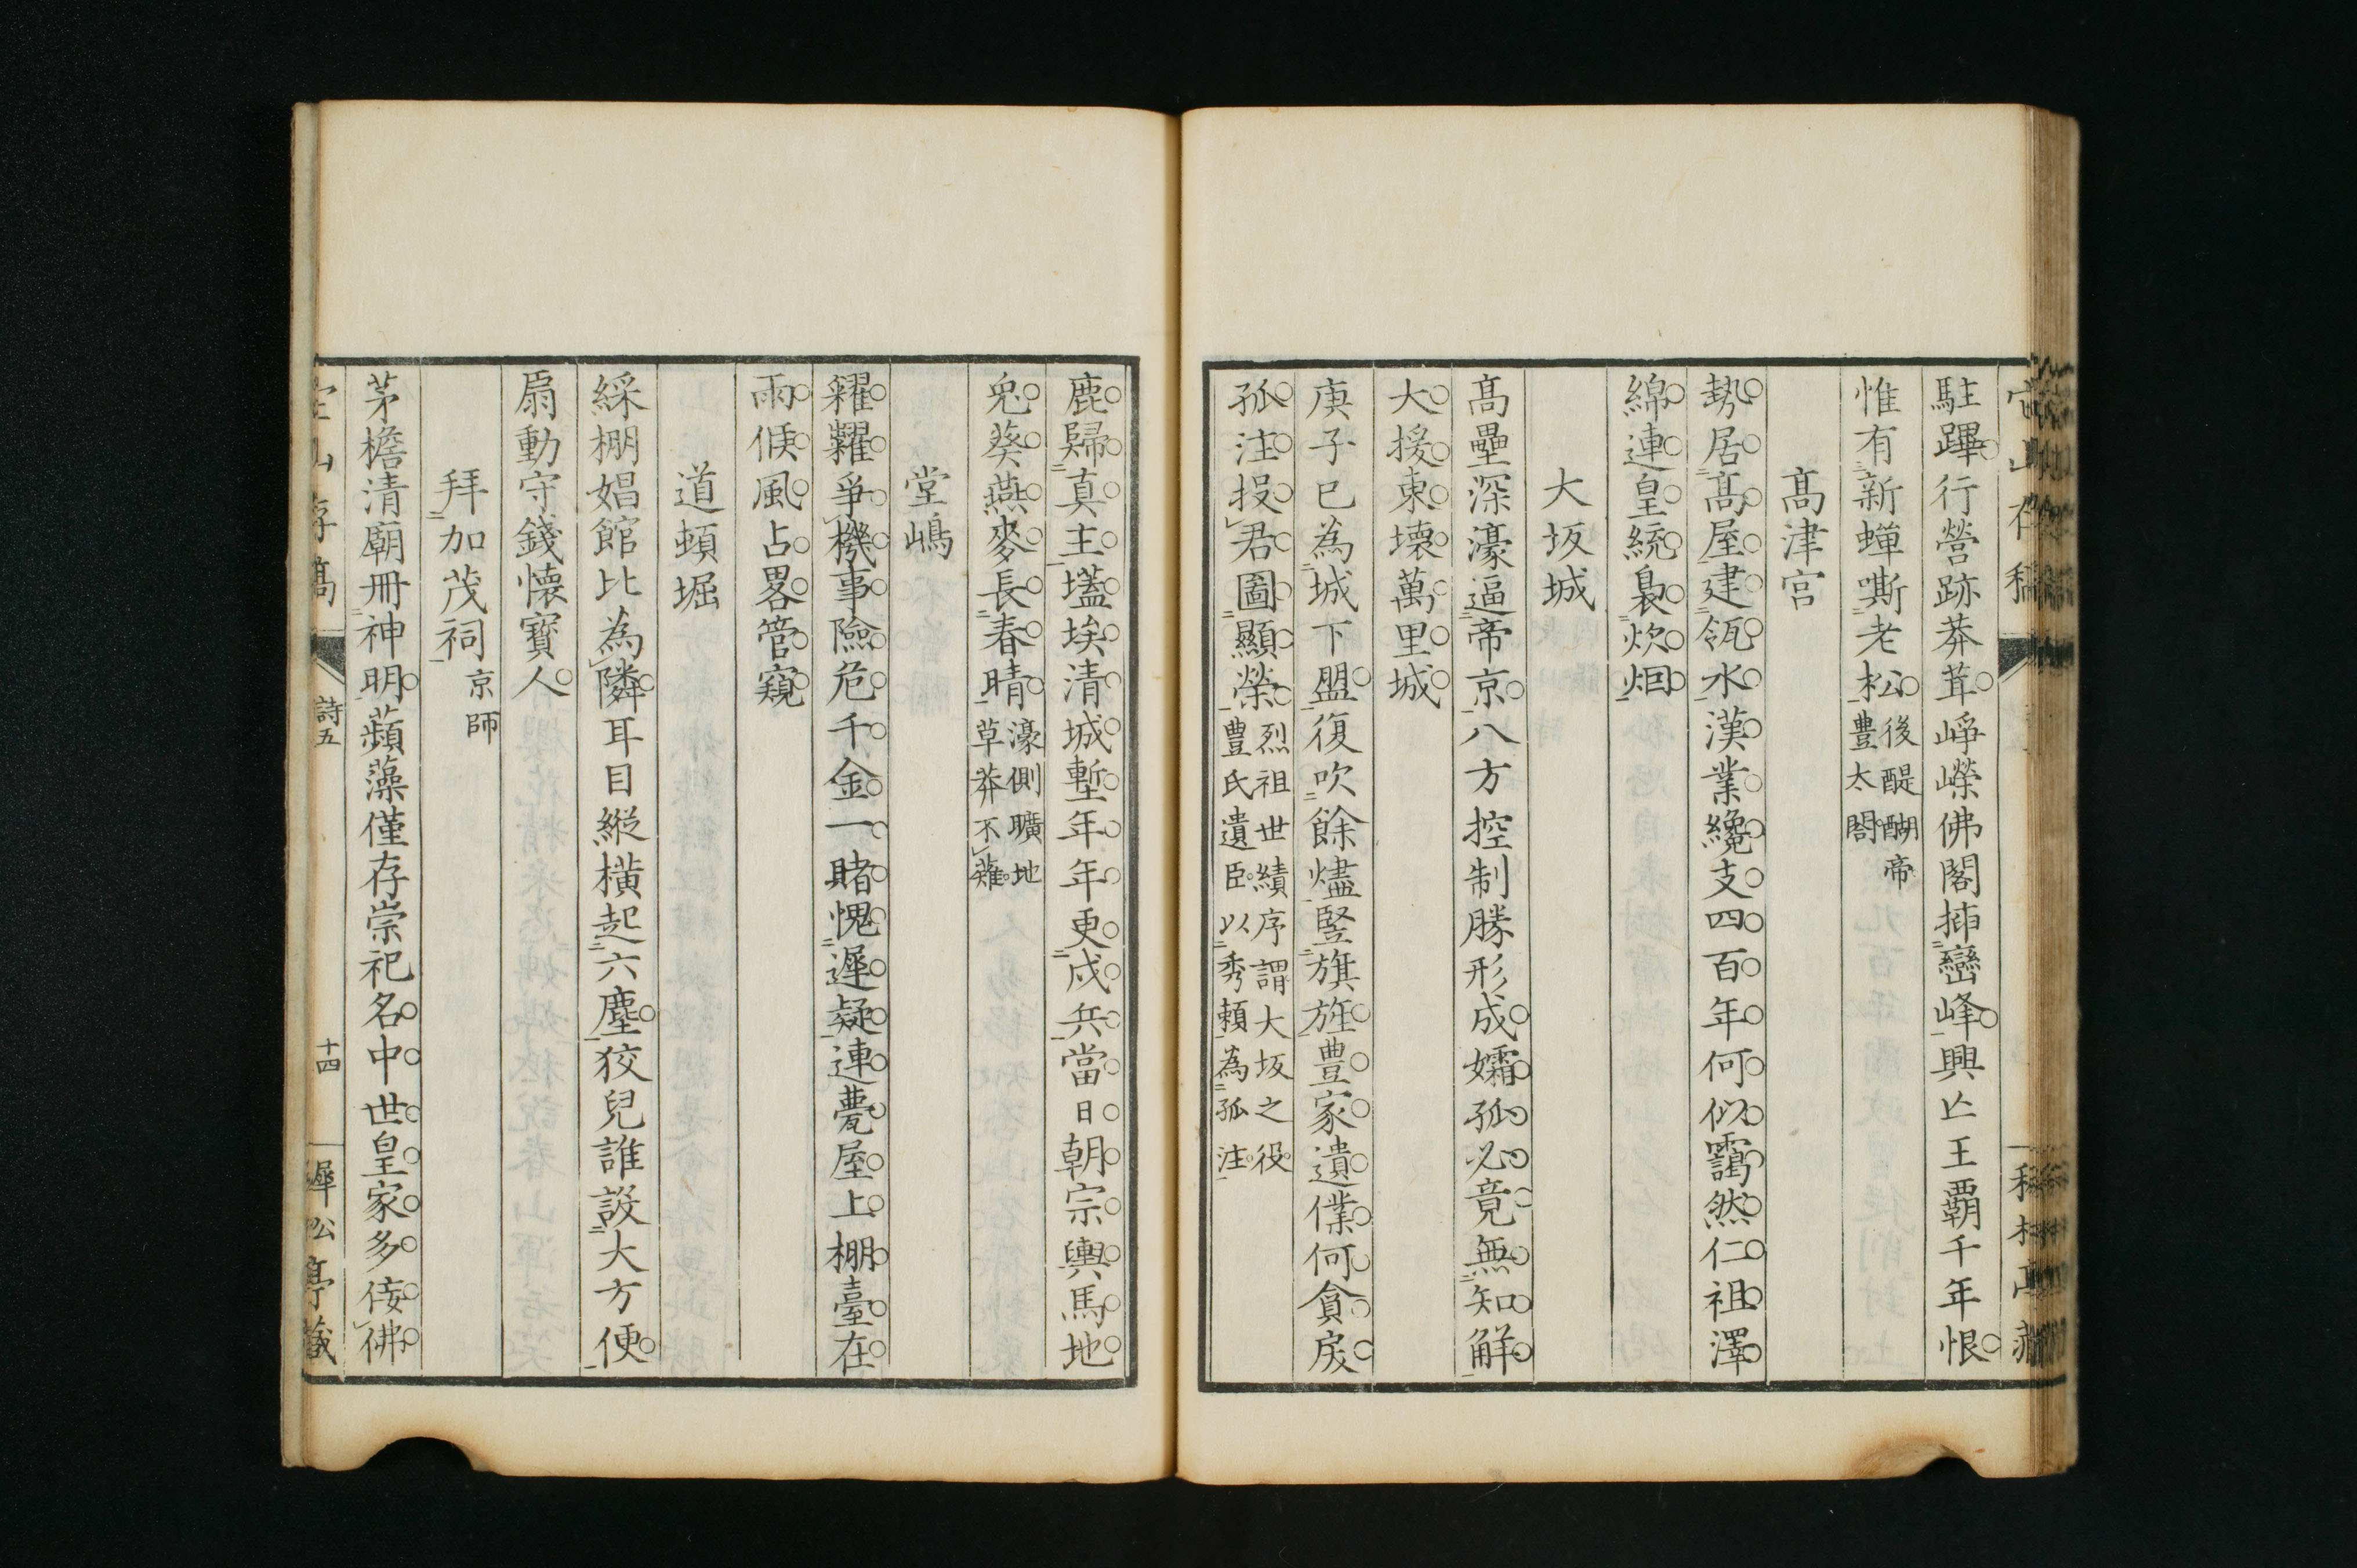 駐蹕行營跡莽茸崢嶸佛閣揷巒峰興亾王覇千年恨
惟有新蟬嘶老松後醍醐帝豊太閤
髙津宮
勢居髙屋建瓴水漢業纔支四百年何似靄然仁祖澤
綿連皇統裊炊烟
大坂城
髙壘深濠逼帝京八方控制勝形成孀孤必竟無知觧
大援東壊萬里城
庚子已為城下盟復吹餘燼竪旗旌豊家遺僕何貪戾
孤注投君圖顯榮烈祖世績序謂大坂之役豊氏遺臣以秀頼為孤注
鹿歸真主壒埃清城塹年年更戍兵當日朝宗輿馬地
兎葵燕麥長春晴濠側曠地草莽不薙
堂嶋
糴糶爭機事險危千金一賭愧遲疑連甍屋上棚臺在
雨候風占畧管窺
道頓堀
綵棚娼館比為隣耳目縱橫起六塵狡兒誰設大方便
扇動守錢懷寳人
拜加茂祠京師
茅檐清廟冊神明蘋藻僅存崇祀名中世皇家多侫佛
詩五
十四